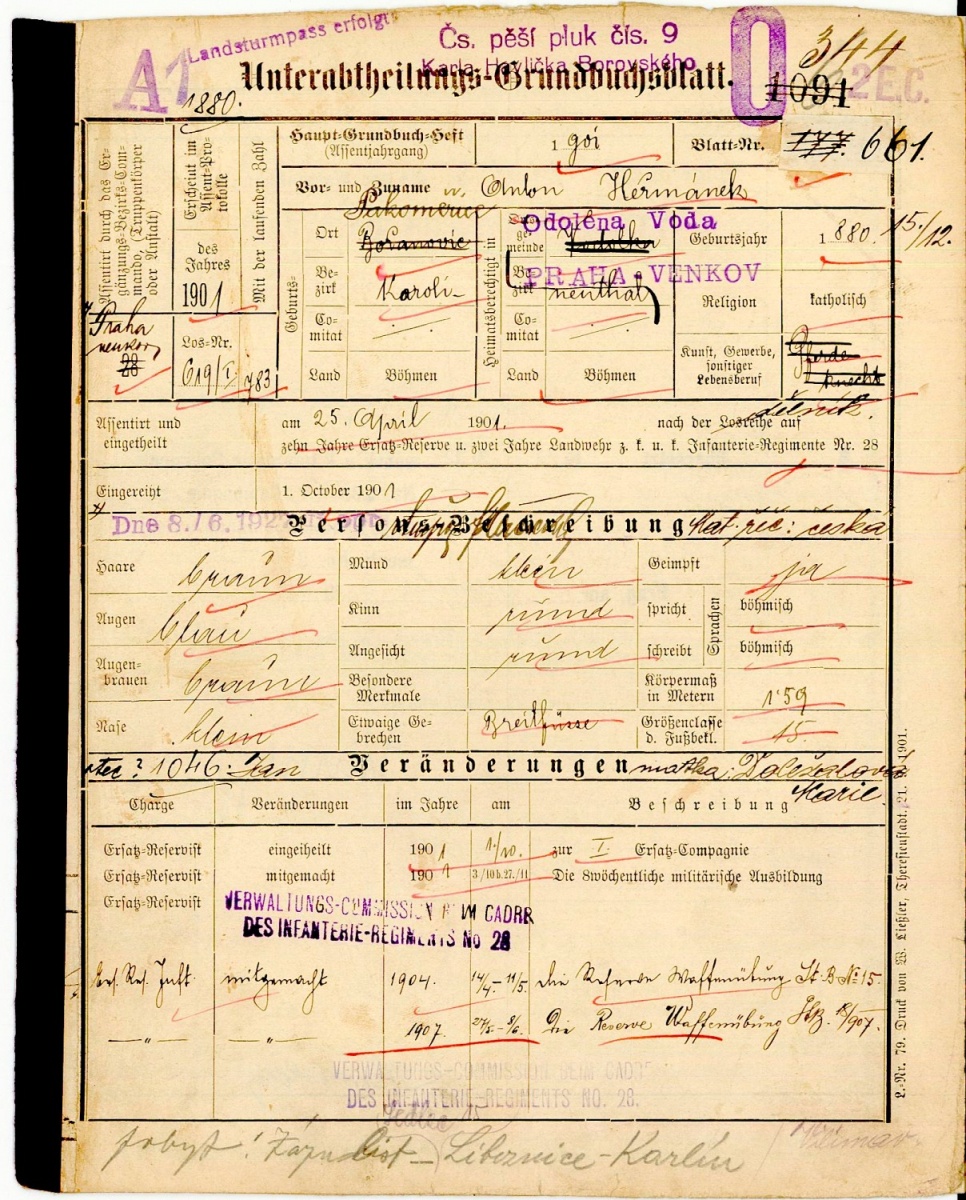 A1
Landsturmpass erfolgt
Čs. pěší pluk čís. 9
Karla Havlíčka Borovského
O
344
Unterabtheilungs-Grundbuchsblatt.
1091
2 E.C.
1880.
Assentirt durch das Ergänzungs-Bezirks-Commando, (Truppenkörper oder Anstalt)
Praha
venkov
28
Erscheint im Assent-Protokolle
des Jahres
1901
Los-Nr.
619/I
Mit der laufenden Zahl
783
Haupt-Grundbuch-Heft
(Assentjahrgang)
1901
Blatt-Nr.
177. 661.
Vor- und Zuname
Anton Heřmánek
Geburts-
Ort
Pakomerice
Bořanovic
Bezirk
Karoli-
Comitat
Land
Böhmen
Heimatsberechtigt in
Gemeinde
Odolena Voda
Vodolka
Bezirk
PRAHA-VENKOV
nenthal
Comitat
Land
Böhmen
Geburtsjahr
1880. 15/12.
Religion
katholisch
Kunst, Gewerbe,
sonstiger
Lebensberuf
Pferde
knecht
dělník.
Assentirt und
eingetheilt
am 25. April 1901. nach der Losreihe auf
zehn Jahre Ersatz-Reserve u. zwei Jahre Landwehr z. k. u. k. Infanterie-Regimente Nr. 28
Eingereiht
1. October 1901
Dne 8./6. 192
Persons-Beschreibung
Mat. řeč: česká
Haare
braun
Augen
blau
Augen-
brauen
braun
Nase
klein
Mund
klein
Kinn
rund
Angesicht
rund
Besondere
Merkmale
Etwaige Ge-
brechen
Breitfüsse
Geimpft
ja
Sprachen
spricht
böhmisch
schreibt
böhmisch
Körpermaß
in Metern
1·59
Größenclasse
d. Fußbekl.
15.
otec: 1046. Jan
Veränderungen
matka: Doležalová
Marie
Charge Veränderungen im Jahre am Beschreibung
Ersatz-Reservist eingetheilt 1901 1./10. zur I. Ersatz-Compagnie
Ersatz-Reservist mitgemacht 1901 3/10 b. 27./11 Die 8wöchentliche militärische Ausbildung
Ersatz-Reservist
VERWALTUNGS-COMMISSION BEIM CADRE
DES INFANTERIE-REGIMENTS No 28
Ers. Res. Inft mitgemacht 1904. 14/4.-11/5. die Reserve Waffenübung St. B. No 15.
—„— —„— 1907. 27/5.-8/6. Die Reserve Waffenübung 18/907.
VERWALTUNGS-COMMISSION BEIM CADRE
DES INFANTERIE-REGIMENTS NO. 28.
pobyt: Zápu list – Libeznice-Karlín
L.-Nr. 79. Druck von W. Ließler, Theresienstadt. 21. 1901.